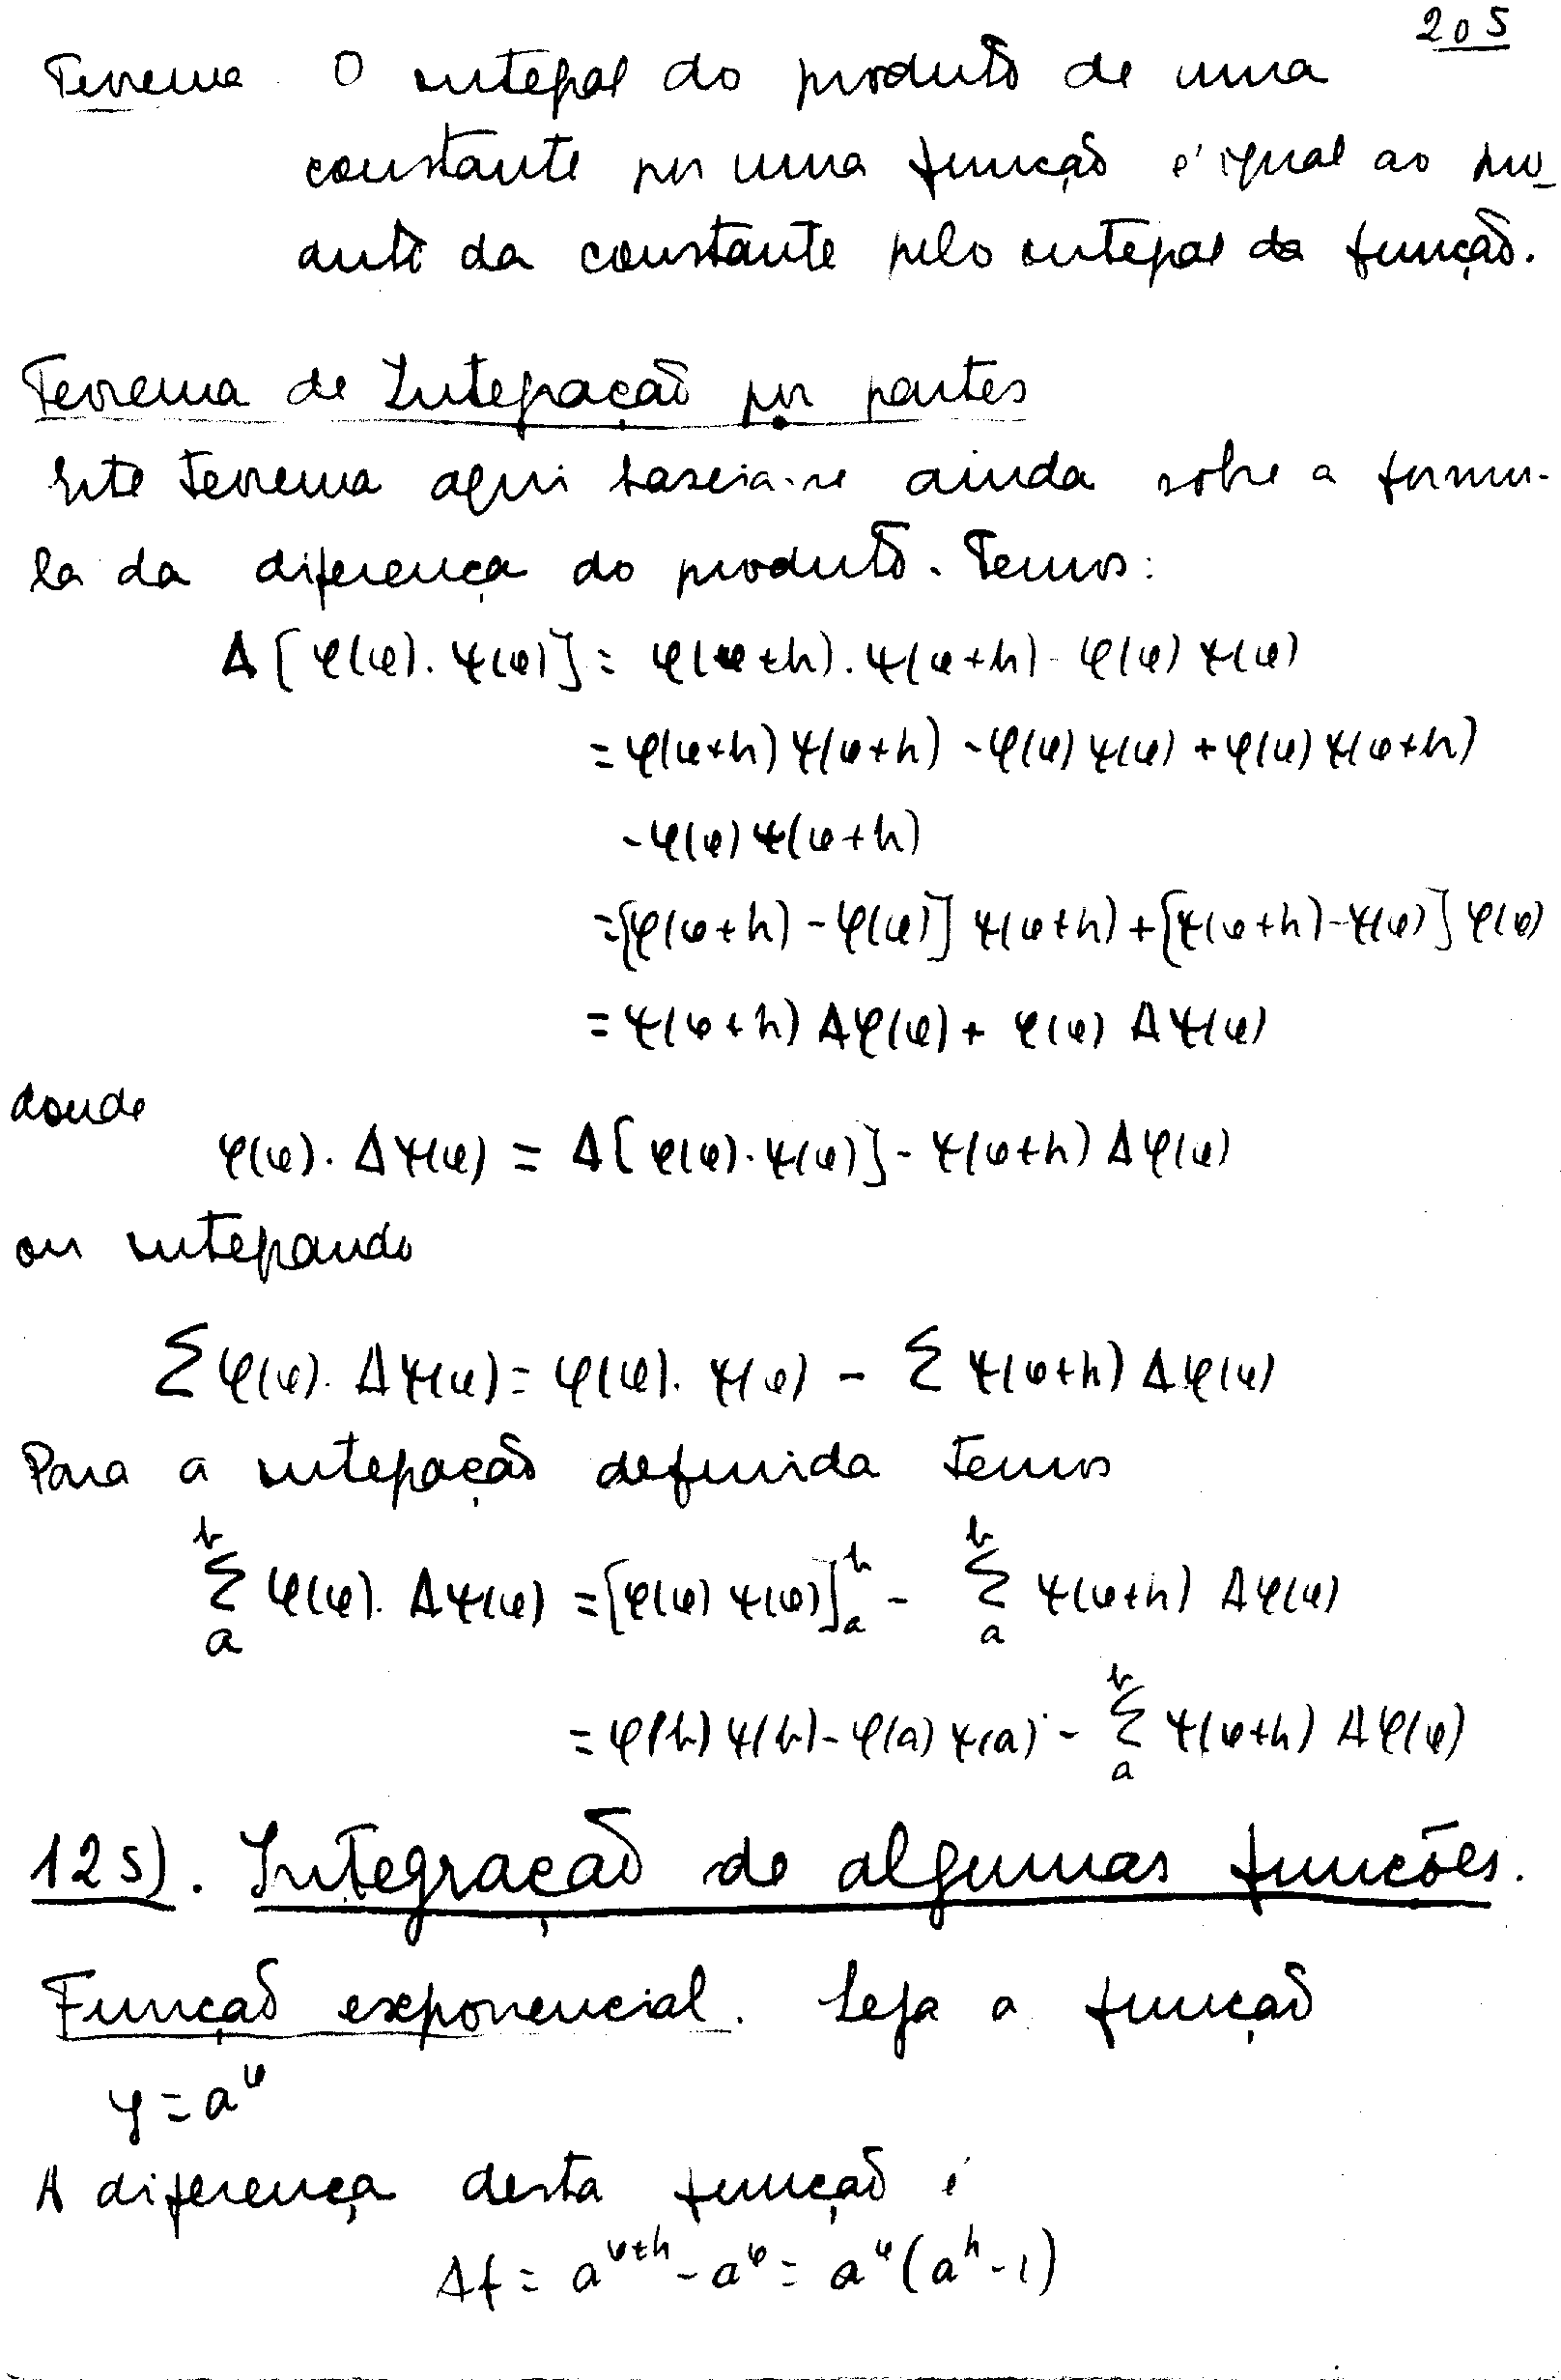 205
Teorema O integral do produto de uma
constante por uma função é igual ao pro_
duto da constante pelo integral da função.
Teorema de Integração por partes
Este teorema aqui baseia-se ainda sobre a formu-
la da diferença do produto. Temos:
Δ[φ(x).ψ(x)] = φ(x+h).ψ(x+h) - φ(x)ψ(x)
= φ(x+h)ψ(x+h) - φ(x)ψ(x) + φ(x)ψ(x+h)
- φ(x)ψ(x+h)
= [φ(x+h) - φ(x)] ψ(x+h) + [ψ(x+h) - ψ(x)] φ(x)
= ψ(x+h) Δφ(x) + φ(x) Δψ(x)
donde
φ(x). Δψ(x) = Δ[φ(x).ψ(x)] - ψ(x+h) Δφ(x)
ou integrando
Σ φ(x). Δψ(x) = φ(x). ψ(x) - Σ ψ(x+h) Δφ(x)
Para a integração definida temos
Σ_a^b φ(x). Δψ(x) = [φ(x) ψ(x)]_a^b - Σ_a^b ψ(x+h) Δφ(x)
= φ(b)ψ(b) - φ(a)ψ(a) - Σ_a^b ψ(x+h) Δφ(x)
125). Integração de algumas funções.
Função exponencial. Seja a função
y = a^x
A diferença desta função é
Δf = a^{x+h} - a^x = a^x (a^h - 1)